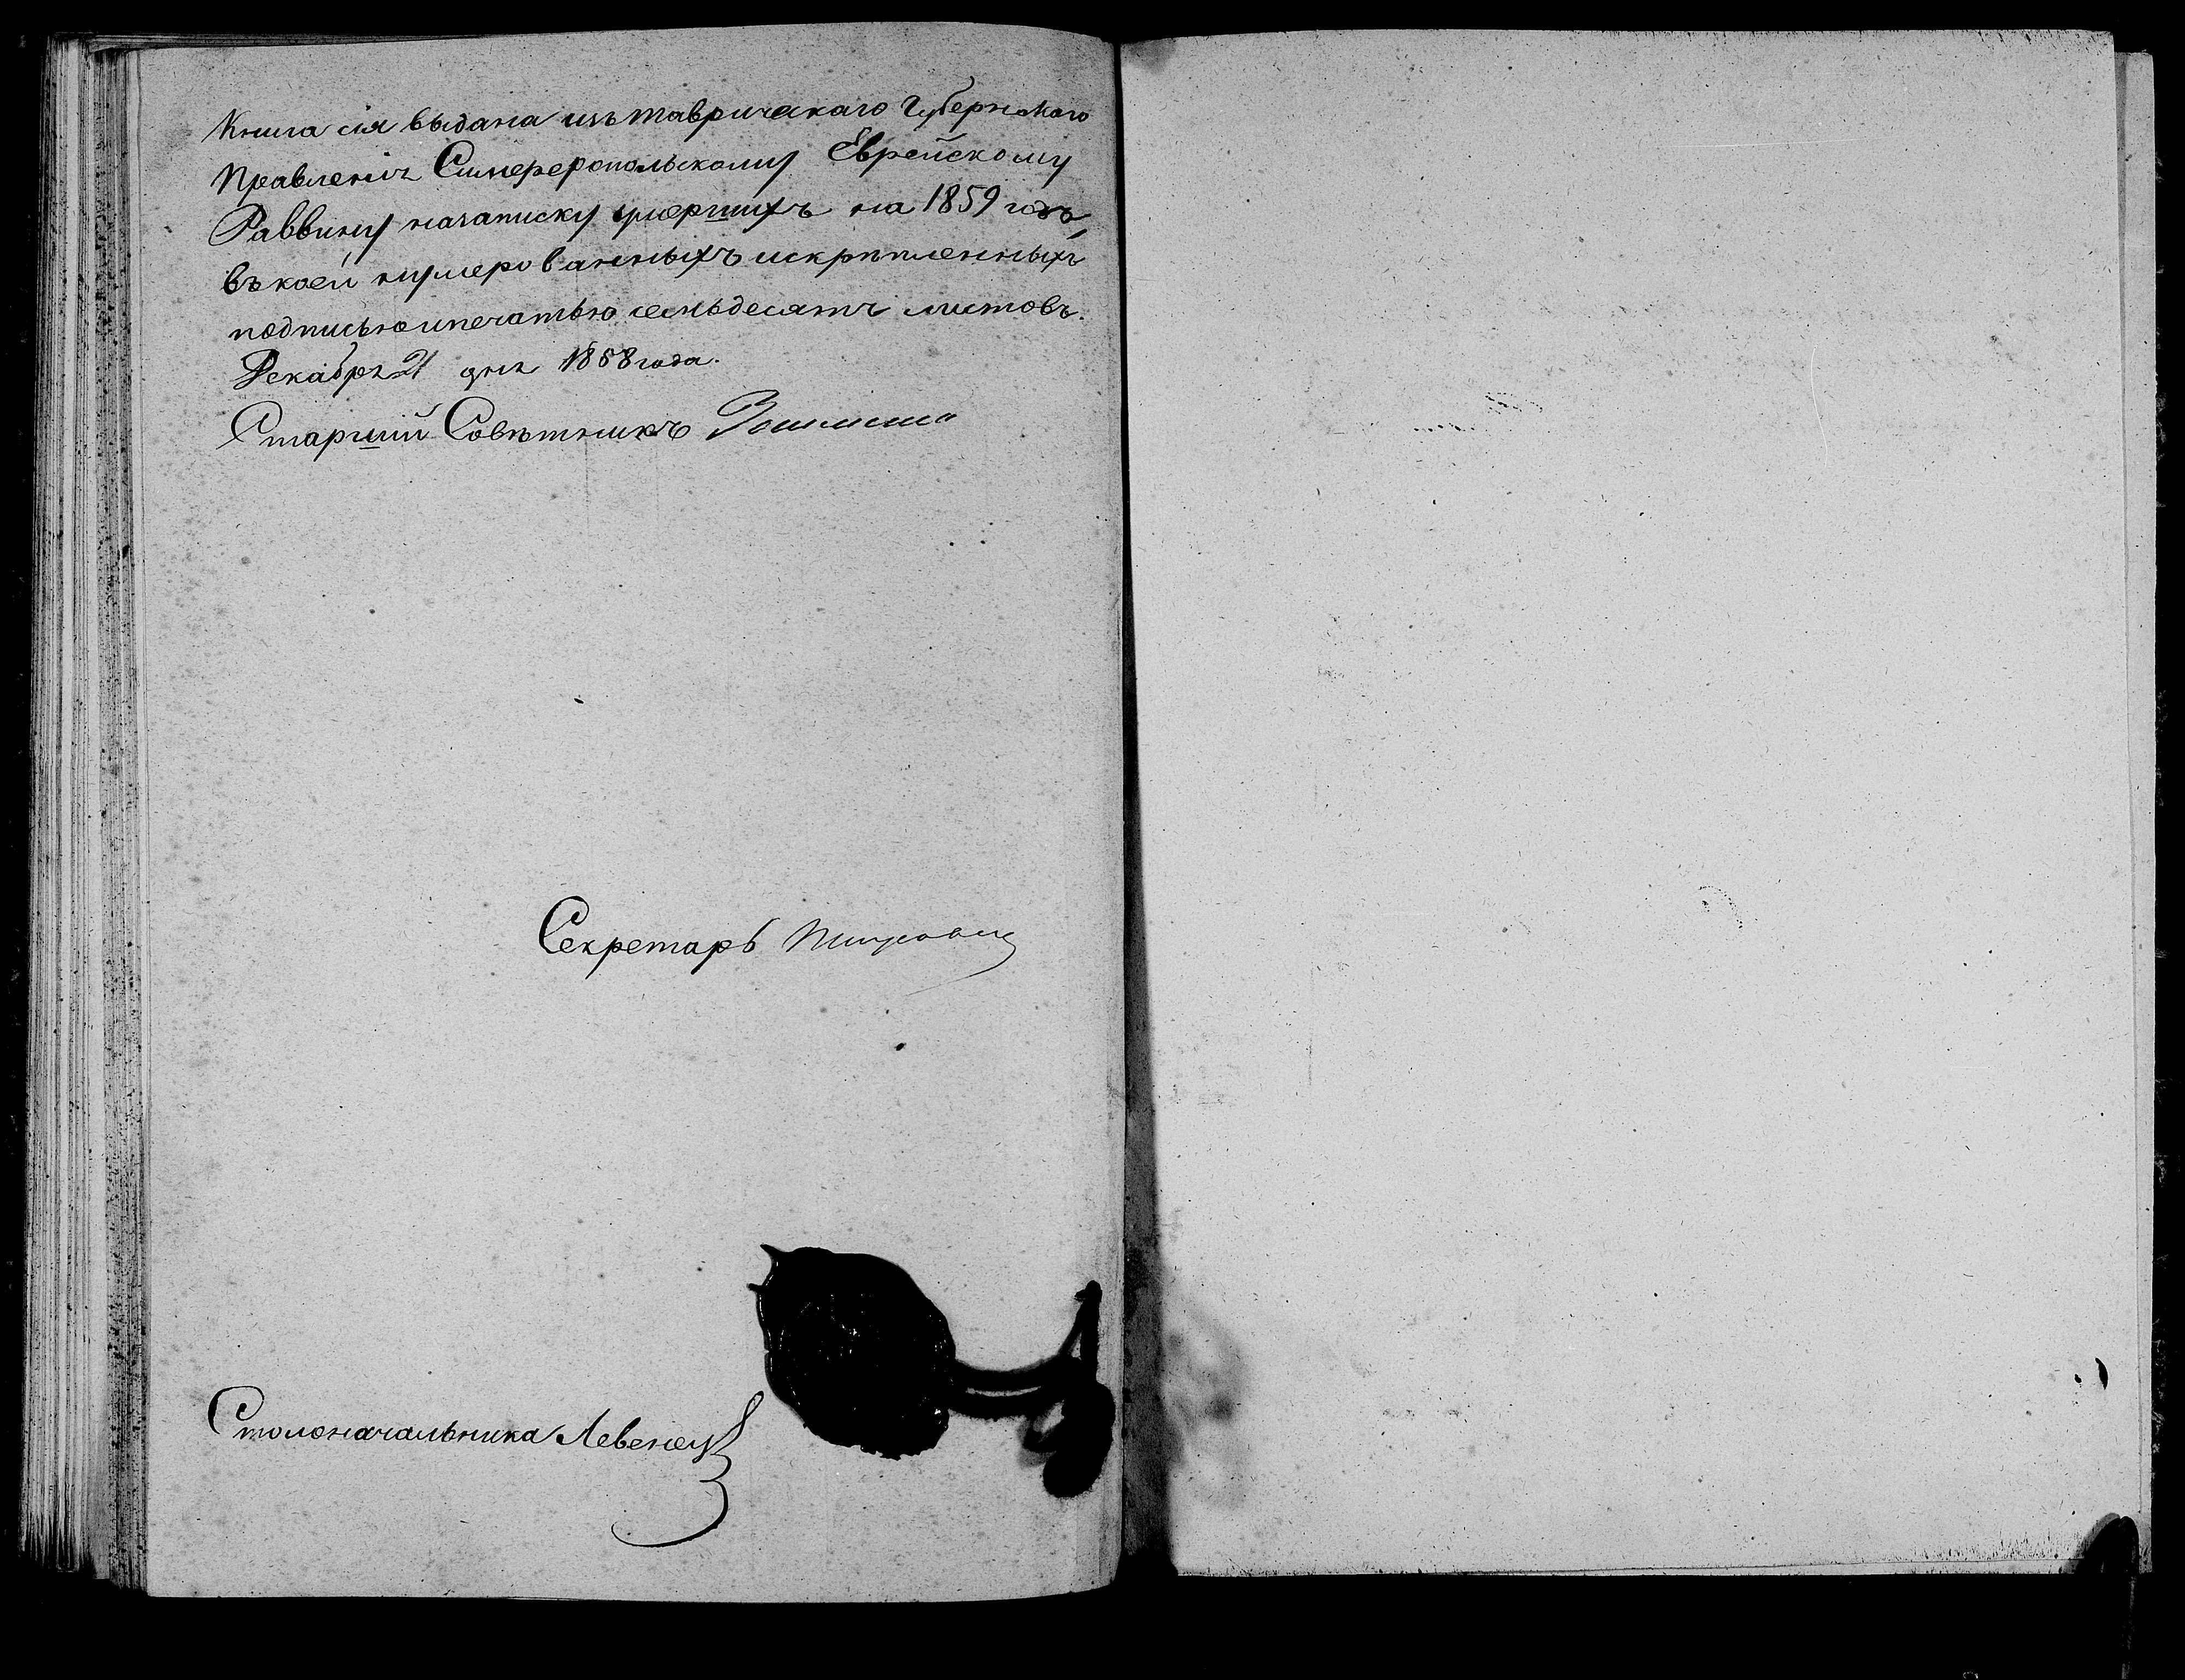 Книга сія выдана изъ таврическаго Губернскаго
Правленія Симферопольскому Еврейскому
Раввину на записку умершихъ на 1859 годъ,
въ коей нумерованныхъ и скрѣпленныхъ
подписью и печатью семьдесятъ листовъ.
Декабря 21 дня 1858 года.
Старшій Совѣтникъ
Секретарь
Столоначальника Левенец